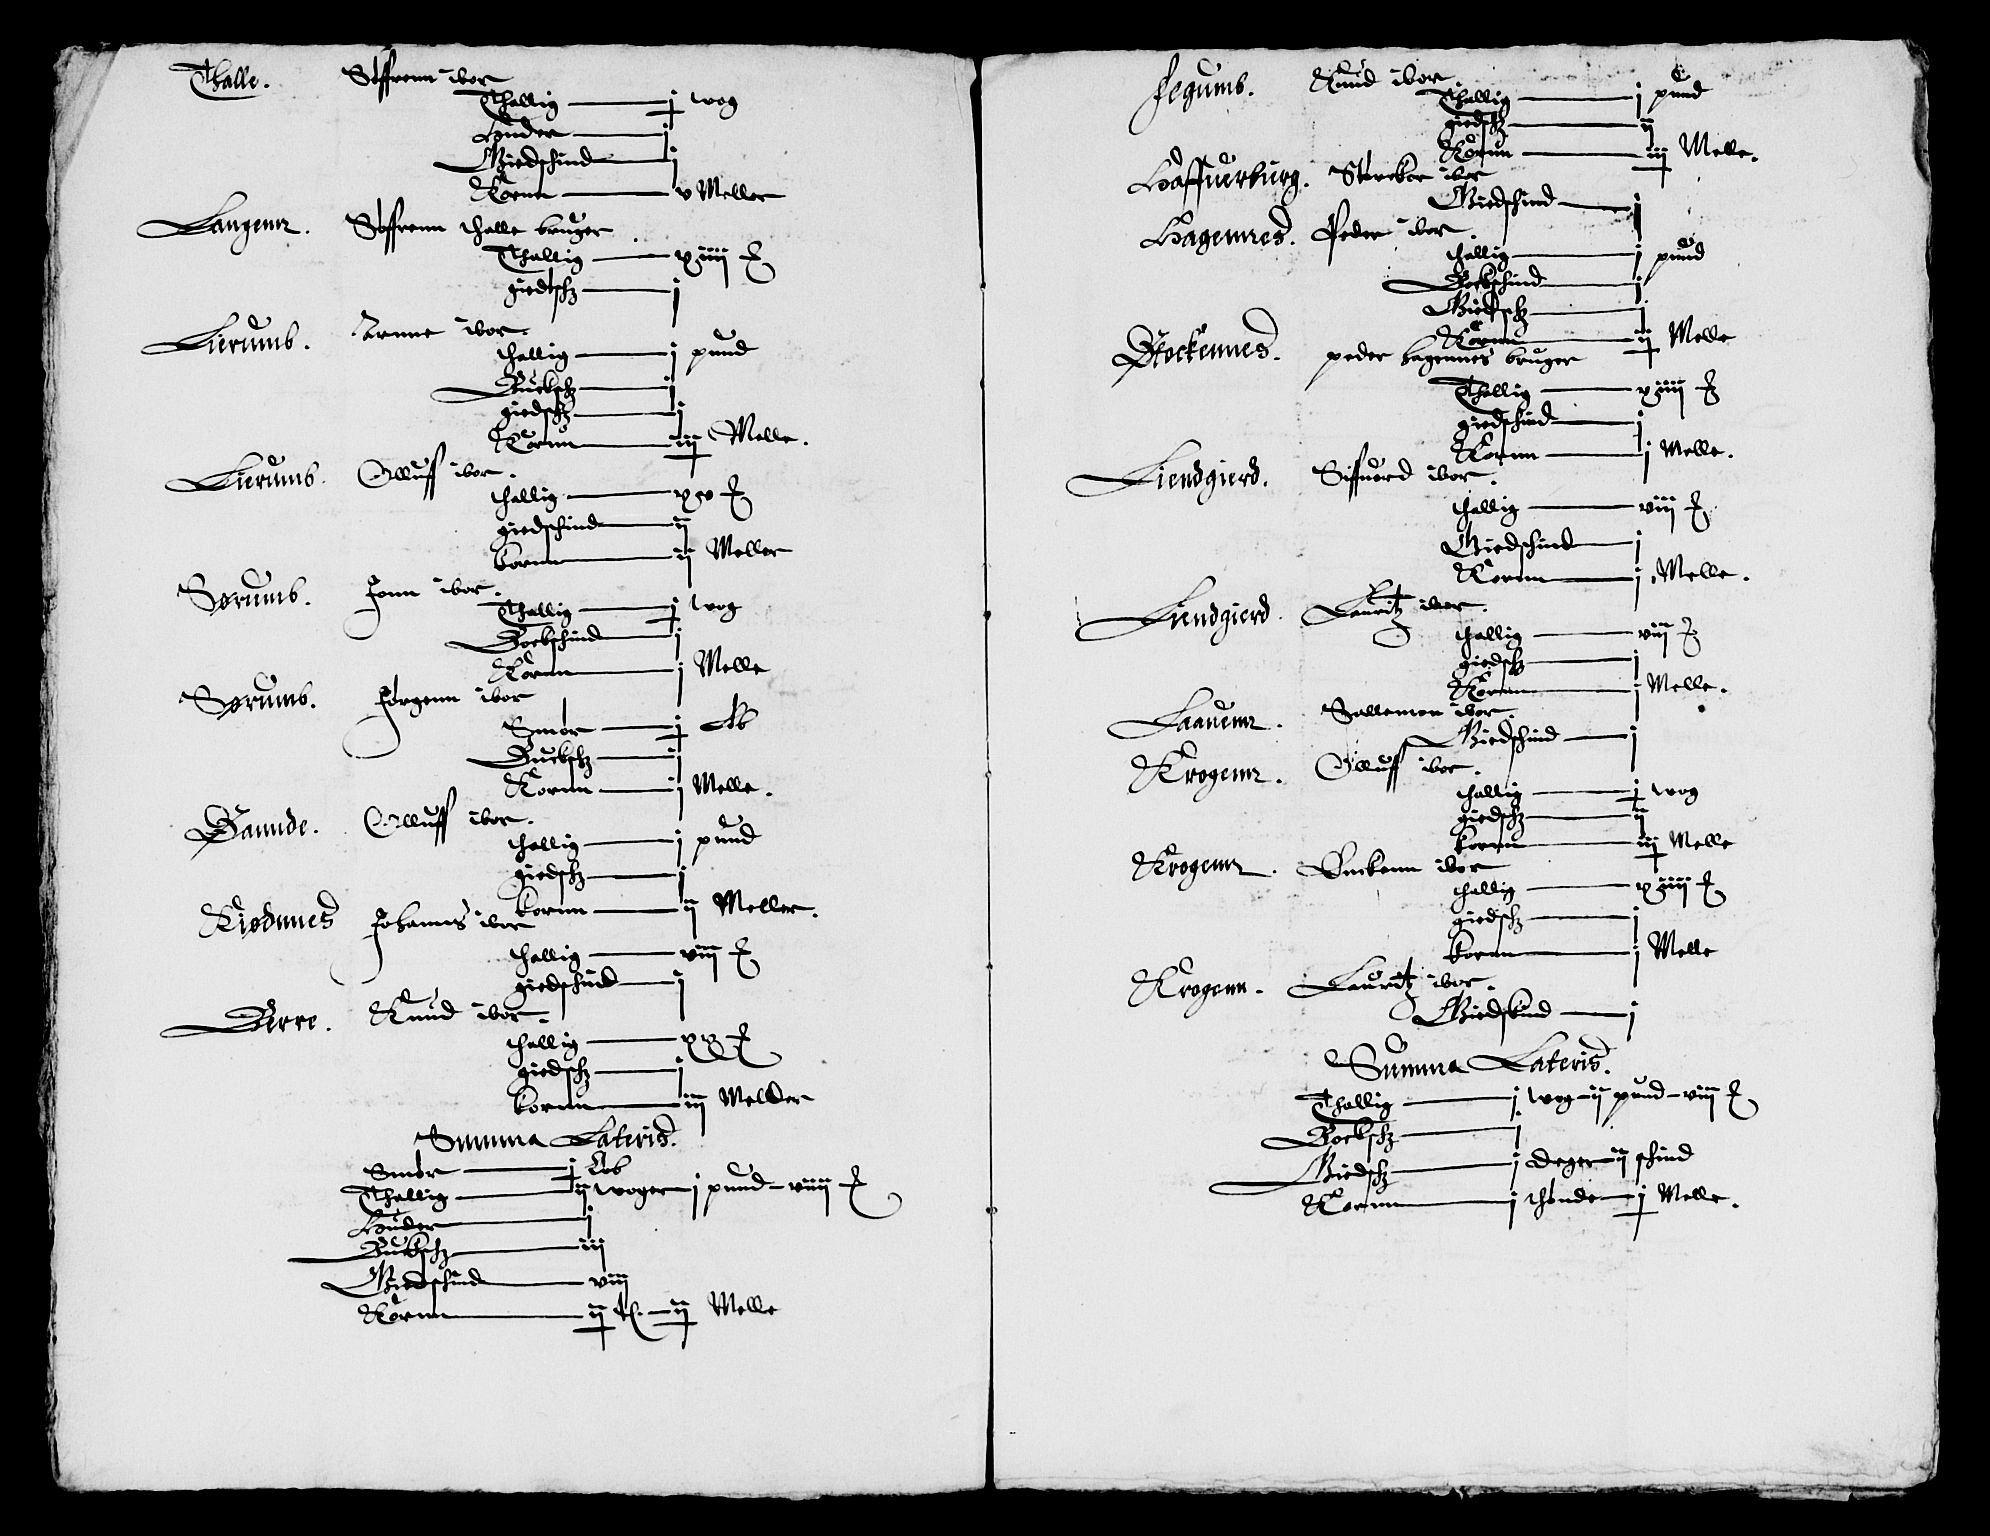 Thalle. Söffrenn ibor
Thallig j wog
Huder j
Giedschind j
Kornn v Meller
Langenn. Söffrenn thalle bruger
Thallig xiiii
giedtsch j
Lierumb. Arnne ibor.
thallig j pund
Bucksch j
giedsch j
Kornn iij Melle.
Lierumb. Olluff ibor.
thallig xv
giedschind ij
kornn ij Meller
Sørumb. Jonn ibor.
Thallig j wog
Bockschind j
Kornn j Melle
Sørumb. Jørgenn ibor
Smör j
Bucksch j
Kornn j Melle.
Saunde. Olluff ibor.
thallig j pund
giedsch j
kornn ij Meller.
Kiødnnes Johannes ibor
thallig viij
giedschind j
Berre. Knud ibor.
thallig xx
giedsch j
kornn iij Melder
Summa Lateris.
Smör j
Thallig ij woger j pund viiij
Huder j
Bucksch iij
Giedschind viij
Kornn ij t. ij Melle
Segumb. Knud ibor.
Thallig j pund
giedsch ij
Kornn iij Melle.
Haffuerburg. Stercker ibor
Giedschind j
Hagennes. Peder ibor.
thallig j pund
Bockschind j
Giedsch j
Kornn ij Melle
Stockennes. peder hagennes bruger
Thallig xiiii
giedschind j
Kornn j Melle.
Liendgierd. Siffuerd ibor.
thallig viij
Giedschind j
Kornn j Melle.
Liendgierd. Lauritz ibor.
thallig viij
giedsch j
Kornn j Melle.
Laauenn. Sallemon ibor.
Giedschind j
Krogenn. Olluff ibor.
thallig j wog
giedsch ij
kornn iij Melle
Krogenn. ibor
thallig xiiii
giedsch j
kornn j Melle
Krogenn. Lauritz ibor.
Giedskind j
Summa Lateris.
Thallig j wog ij pund viij
Bocksch j
Giedsch j deger ij schind
Kornn j thönde j Melle.